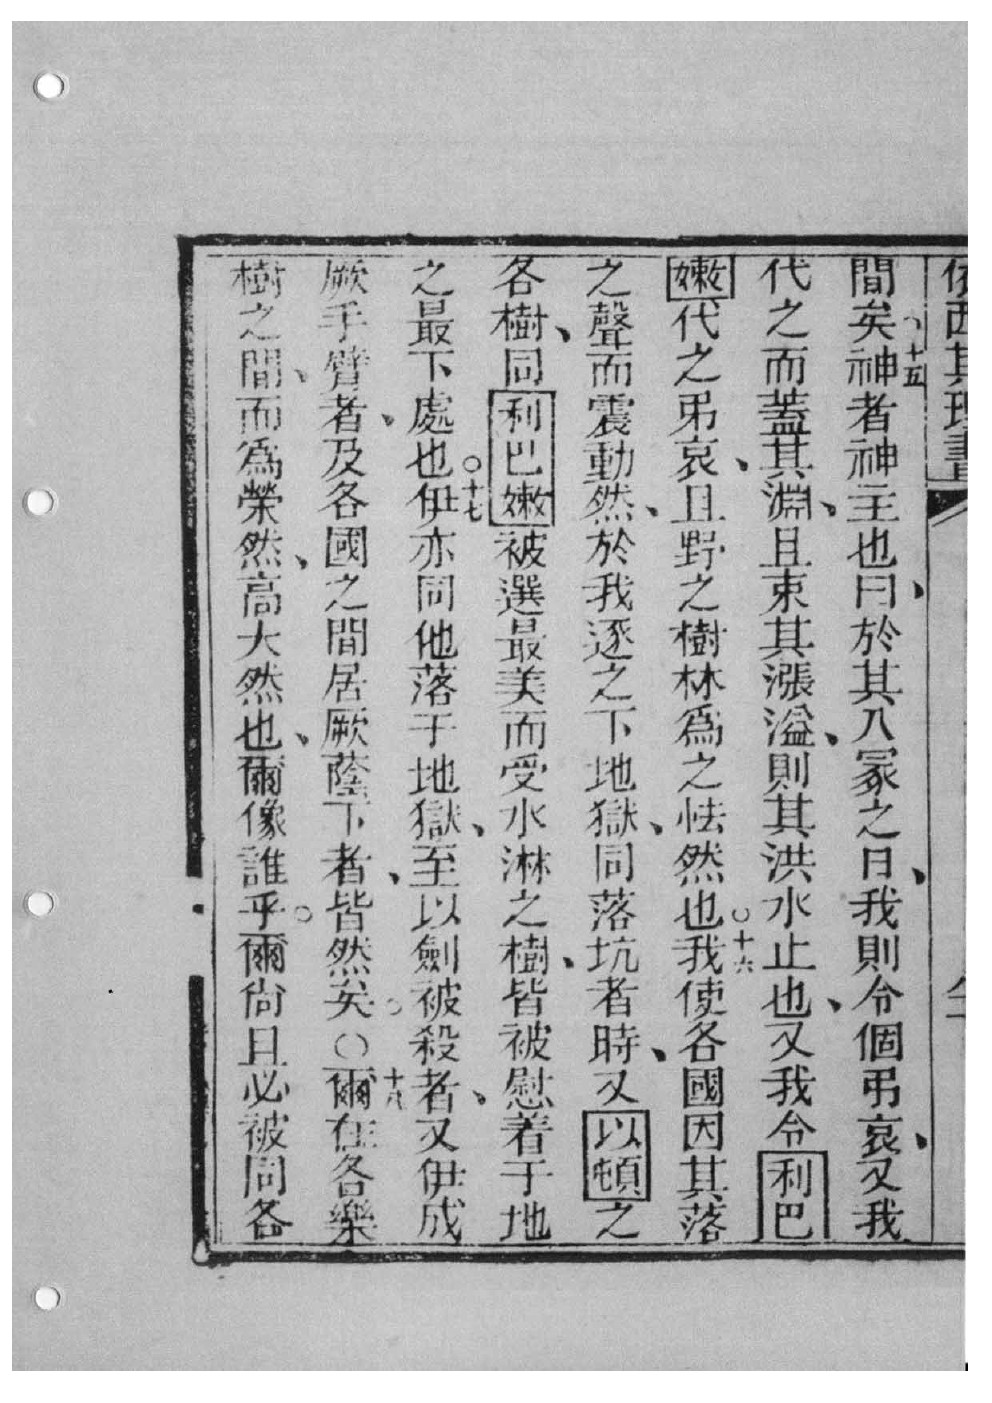 依西其理書
間矣、十五神者神主也曰、於其入冢之日、我則令個弔哀、又我
代之而蓋其淵、且束其漲溢、則其洪水止也、又我令利巴
嫩代之弔哀、且野之樹林爲之怯然也。十六我使各國因其落
之聲而震動然、於我逐之下地獄、同落坑者時、又以頓之
各樹、同利巴嫩被選最美而受水淋之樹、皆被慰着于地
之最下處也。十七伊亦同他落于地獄、至以劍被殺者、又伊成
厥手臂者、及各國之間居厥蔭下者、皆然矣。○十八爾在各樂
樹之間、而爲榮然、高大然也、爾像誰乎。爾尙且必被同各